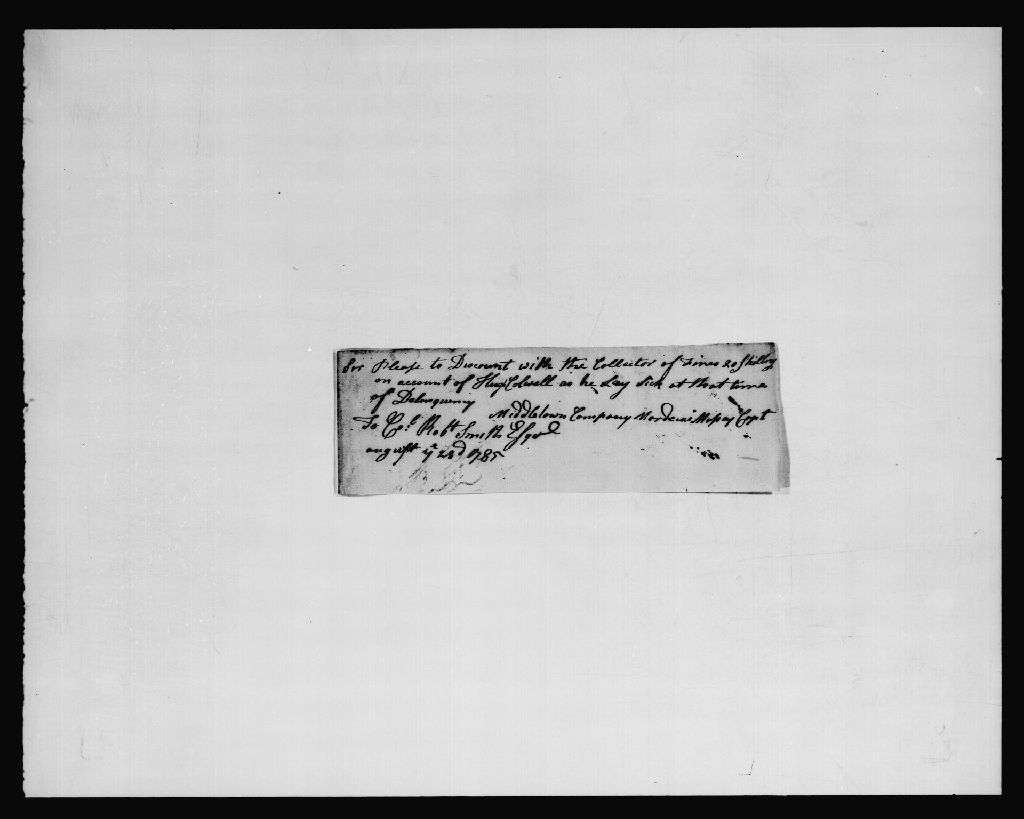 Sir Please to Discount with the Collector of Fines 20 Shillg
on account of Hugh Colwell as he Lay Sick at that time
of Delinquency
Middletown Company Mordecai Cpt
To Col Robt Smith Esqr
august ye 23d 1785